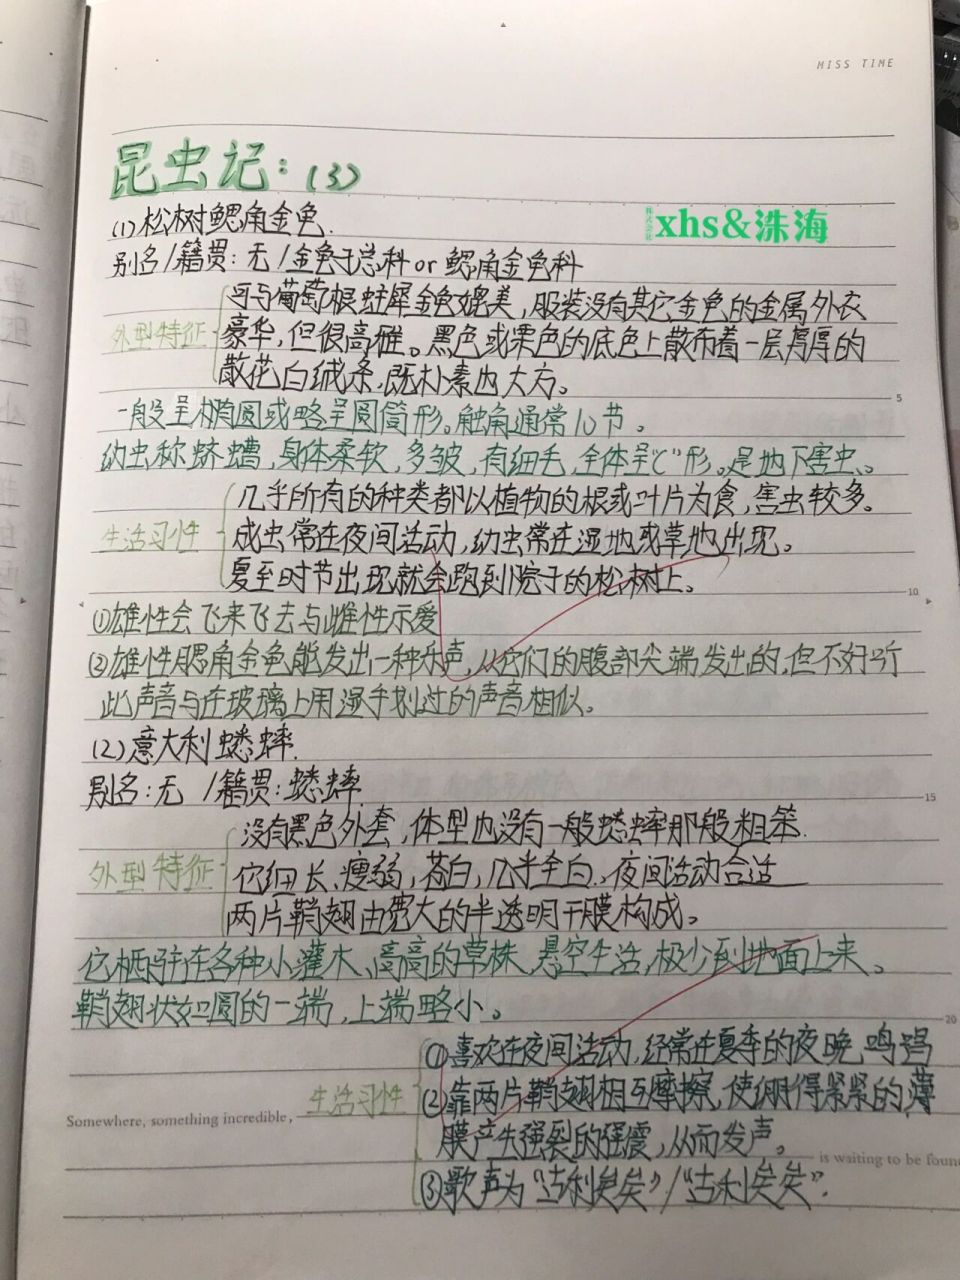 MISS TIME
昆虫记：(3)
株式会社 xhs&洙海
(1)松树鳃角金龟.
别名/籍贯：无/金龟子总科or鳃角金龟科
可与葡萄根蛀犀金龟媲美，服装没有其它金龟的金属外衣
外型特征 豪华，但很高雅。黑色或栗色的底色上散布着一层厚厚的
散花白绒条.既朴素也大方。
一般呈椭圆或略呈圆筒形。触角通常10节。
幼虫称蛴螬，身体柔软，多皱，有细毛，全体呈"C"形。是地下害虫、。
几乎所有的种类都以植物的根或叶片为食，害虫较多。
生活习性 成虫常在夜间活动，幼虫常在湿地或草地出现。
夏至时节出现就会跑到院子的松树上。
①雄性会飞来飞去与雌性示爱
②雄性腮角金龟能发出一种乐声，从它们的腹部尖端发出的，但不好听
此声音与在玻璃上用湿手划过的声音相似。
(2)意大利蟋蟀.
别名：无 /籍贯：蟋蟀.
没有黑色外套，体型也没有一般蟋蟀那般粗笨.
外型特征 它细长、瘦弱，苍白，几乎全白.，夜间活动合适
两片鞘翅由宽大的半透明干膜构成。
它栖驻在各种小灌木、高高的草株，悬空生活，极少到地面上来。
鞘翅状如圆的一端，上端略小。
①喜欢在夜间活动，经常在夏季的夜晚鸣唱
Somewhere, something incredible, 生活习性 ②靠两片鞘翅相互摩擦，使绷得紧紧的薄
膜产生强裂的强震，从而发声。
is waiting to be foun
③歌声为"古利矣矣"/"古利矣矣".
5
10
15
20